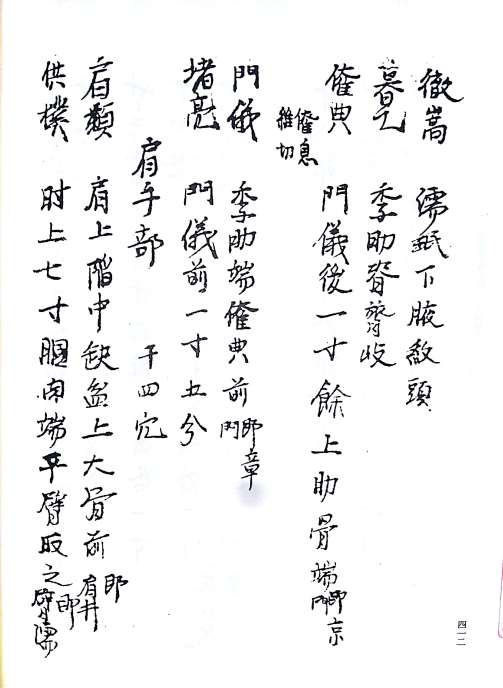 徹嵩 濡䟡下腋紋頭
暮乙 季肋脊膂收
傕典 門儀後一寸餘上肋骨端 即京門
傕息 推切
門儀 季肋端傕典前 即章門
堵亮 門儀前一寸五分
肩手部 二十四穴
肩顙 肩上階中缺盆上大骨前 即肩井
供樸 肘上七寸膕肉端平臂取之 即臂濡
四一二